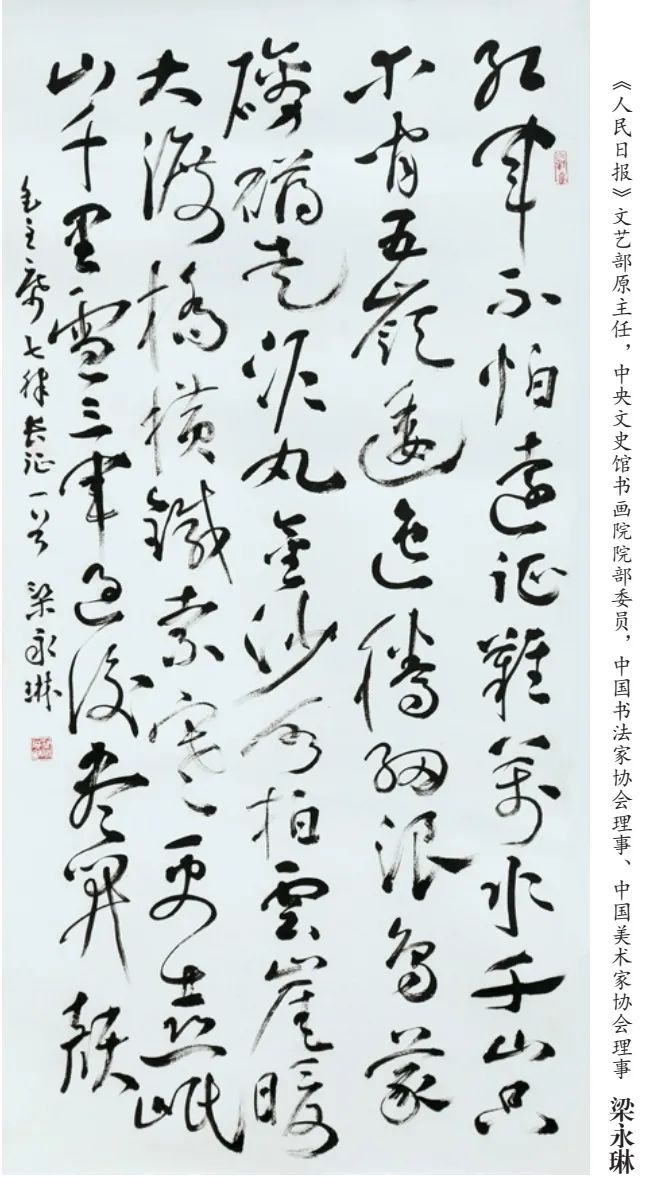 《人民日报》文艺部原主任，中央文史馆书画院院部委员，中国书法家协会理事、中国美术家协会理事 梁永琳
红軍不怕遠征難萬水千山只
等閒五嶺逶迤騰細浪烏蒙
磅礴走泥丸金沙水拍雲崖暖
大渡橋橫鐵索寒更喜岷
山千里雪三軍過後盡開顏
毛主席七律長征一首 梁永琳